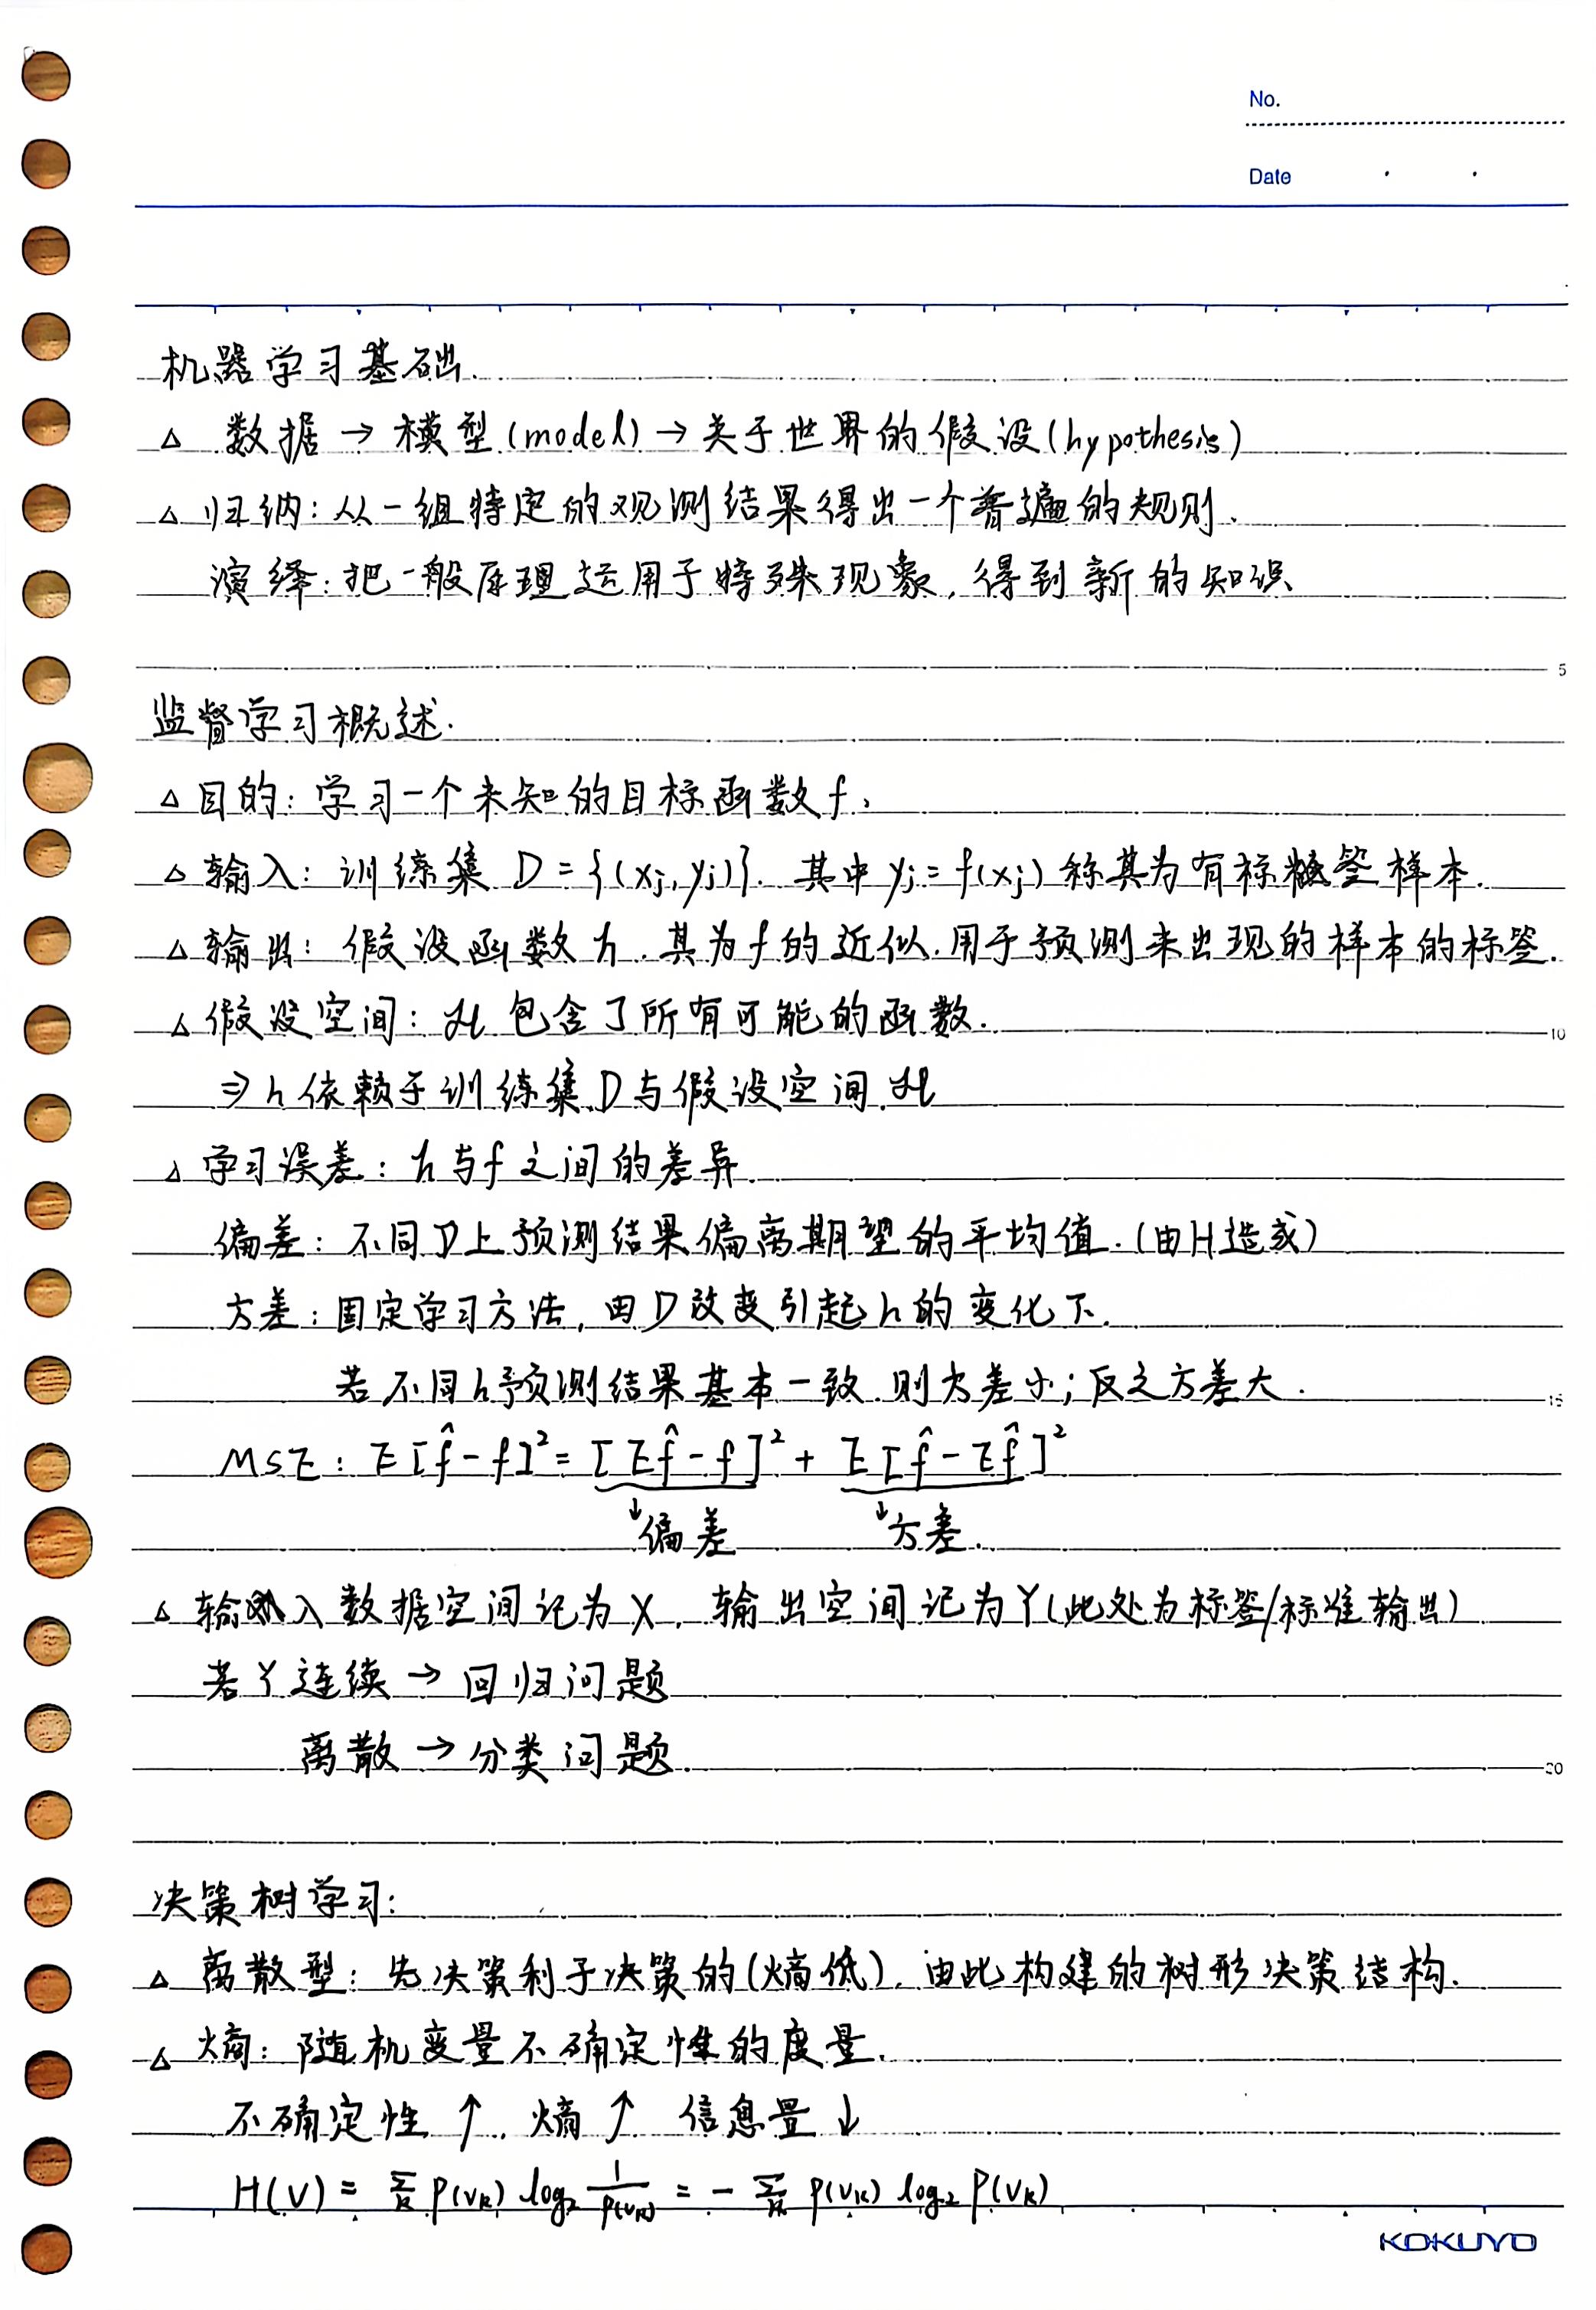 No.
Date
机器学习基础.
△ 数据 → 模型(model) → 关于世界的假设(hypothesis)
△ 归纳: 从一组特定的观测结果得出一个普遍的规则.
演绎: 把一般原理运用于特殊现象, 得到新的知识
5
监督学习概述.
△ 目的: 学习一个未知的目标函数 f.
△ 输入: 训练集 D = {(xj, yj)}. 其中 yj = f(xj) 称其为有标签样本.
△ 输出: 假设函数 h. 其为 f 的近似. 用于预测未出现的样本的标签.
△ 假设空间: ℋ 包含了所有可能的函数.
10
⇒ h 依赖于训练集 D 与假设空间 ℋ
△ 学习误差: h 与 f 之间的差异.
偏差: 不同 D 上预测结果偏离期望的平均值. (由H造成)
方差: 固定学习方法, 由 D 改变引起 h 的变化下.
若不同 h 预测结果基本一致. 则方差小; 反之方差大.
15
MSE: E[f̂ - f]² = [Ef̂ - f]² + E[f̂ - Ef̂]²
↓偏差 ↓方差.
△ 输入数据空间记为 X. 输出空间记为 Y (此处为标签/标准输出)
若 Y 连续 → 回归问题
离散 → 分类问题.
20
决策树学习:
△ 离散型: 先决策利于决策的(熵低). 由此构建的树形决策结构.
△ 熵: 随机变量不确定性的度量.
不确定性 ↑. 熵 ↑ 信息量 ↓
H(V) = Σk P(vk) log₂ 1/P(vk) = - Σk P(vk) log₂ P(vk)
KOKUYO